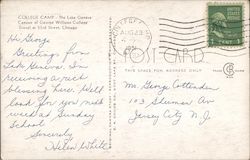 COLLEGE CAMP - The Lake Geneva
Campus of George Williams College
Drexel at 53rd Street, Chicago
Hi George
Greetings from
Lake Geneva. I'm
receiving a rich
blessing here. Will
look for you next
week at Sunday
School
Sincerely
Helen White
AUG 23
POST CARD
THIS SPACE FOR ADDRESS ONLY
Mr. George Cottenden
103 Sherman Ave
Jersey City N.J.